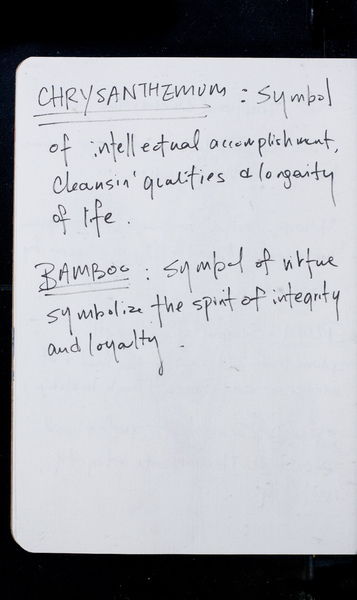 CHRYSANTHEMUM : symbol
of intellectual accomplishment,
cleansin' qualities & longevity
of life.
BAMBOO : symbol of virtue
symbolize the spirit of integrity
and loyalty.